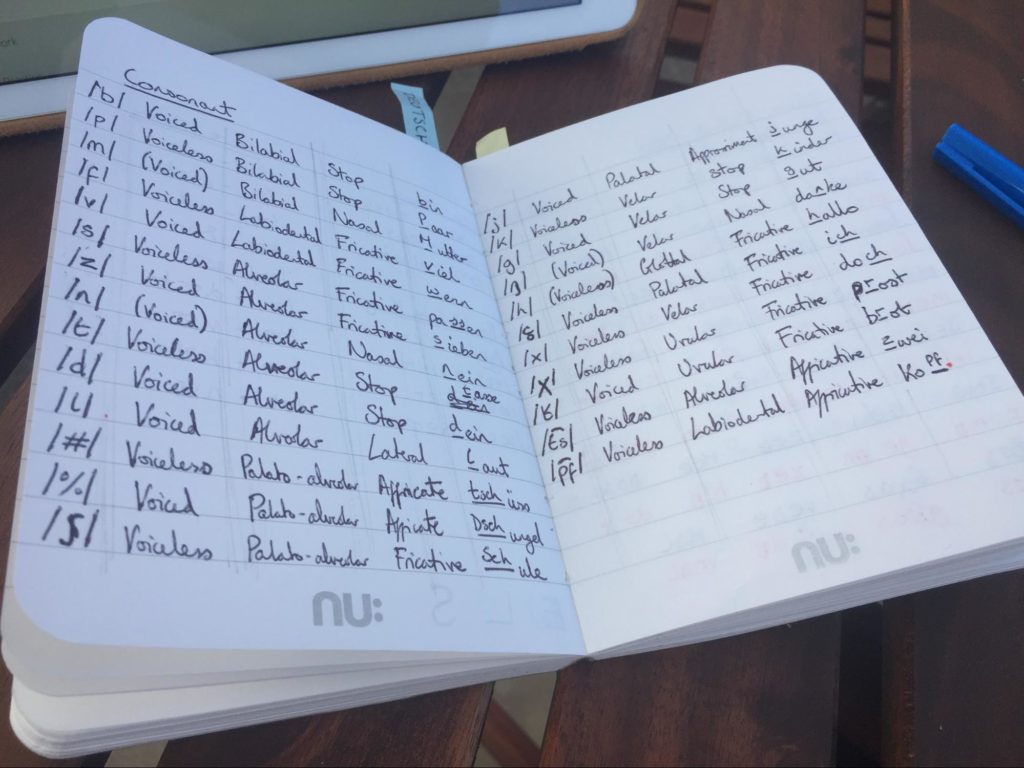 Consonant
/b/ Voiced Bilabial Stop bin
/p/ Voiceless Bilabial Stop Paar
/m/ (Voiced) Bilabial Nasal Mutter
/f/ Voiceless Labiodental Fricative viel
/v/ Voiced Labiodental Fricative wenn
/s/ Voiceless Alveolar Fricative passen
/z/ Voiced Alveolar Fricative sieben
/n/ (Voiced) Alveolar Nasal nein
/t/ Voiceless Alveolar Stop tasse
/d/ Voiced Alveolar Stop dein
/l/ Voiced Alveolar Lateral Laut
/#/ Voiceless Palato-alveolar Affricate tschüss
/%/ Voiced Palato-alveolar Affricate Dschungel
/ʃ/ Voiceless Palato-alveolar Fricative Schule
nu:
/j/ Voiced Palatal Approximant Junge
/k/ Voiceless Velar Stop Kinder
/g/ Voiced Velar Stop gut
/ŋ/ (Voiced) Velar Nasal danke
/h/ (Voiceless) Glottal Fricative hallo
/ç/ Voiceless Palatal Fricative ich
/x/ Voiceless Velar Fricative doch
/χ/ Voiceless Uvular Fricative prost
/ʁ/ Voiced Uvular Fricative brot
/t͡s/ Voiceless Alveolar Affricative zwei
/p͡f/ Voiceless Labiodental Affricative Kopf
nu: